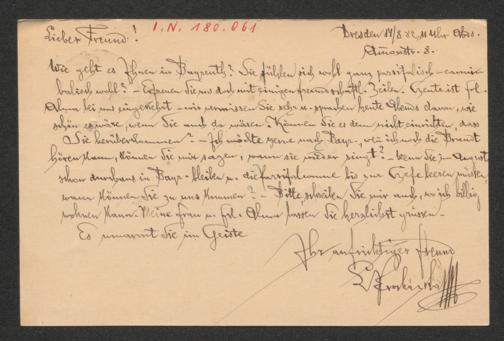 Lieber Freund! I.N. 180.061 Dresden 14/8 82, 11 Uhr Abds.
Amonstr. 8.
Wie geht es Ihnen in Bayreuth? Sie fühlen sich wohl ganz parsifalisch-cannibalisch wohl? – Erfreuen Sie uns doch mit einigen freundschaftl. Zeilen. Heute ist frl.
Alma bei uns eingekehrt – wir vermissen Sie sehr u. sprachen heute Abends davon, wie
schön es wäre, wenn Sie auch da wären! Können Sie es denn nicht einrichten, dass
Sie herüberkommen? – Ich möchte gerne nach Bayr., wo ich auch die Brandt
hören kann, können Sie mir sagen, wann sie wieder singt? – Wenn Sie im August
schon durchaus in Bayr. bleiben u. die bis zur Hefe leeren müssen,
wann können Sie zu uns kommen? – Bitte schreiben Sie mir auch, wo ich billig
wohnen kann. Meine frau u. frl. Alma lassen Sie herzlichst grüssen. –
Es umarmt Sie im Geiste
Ihr aufrichtiger Freund